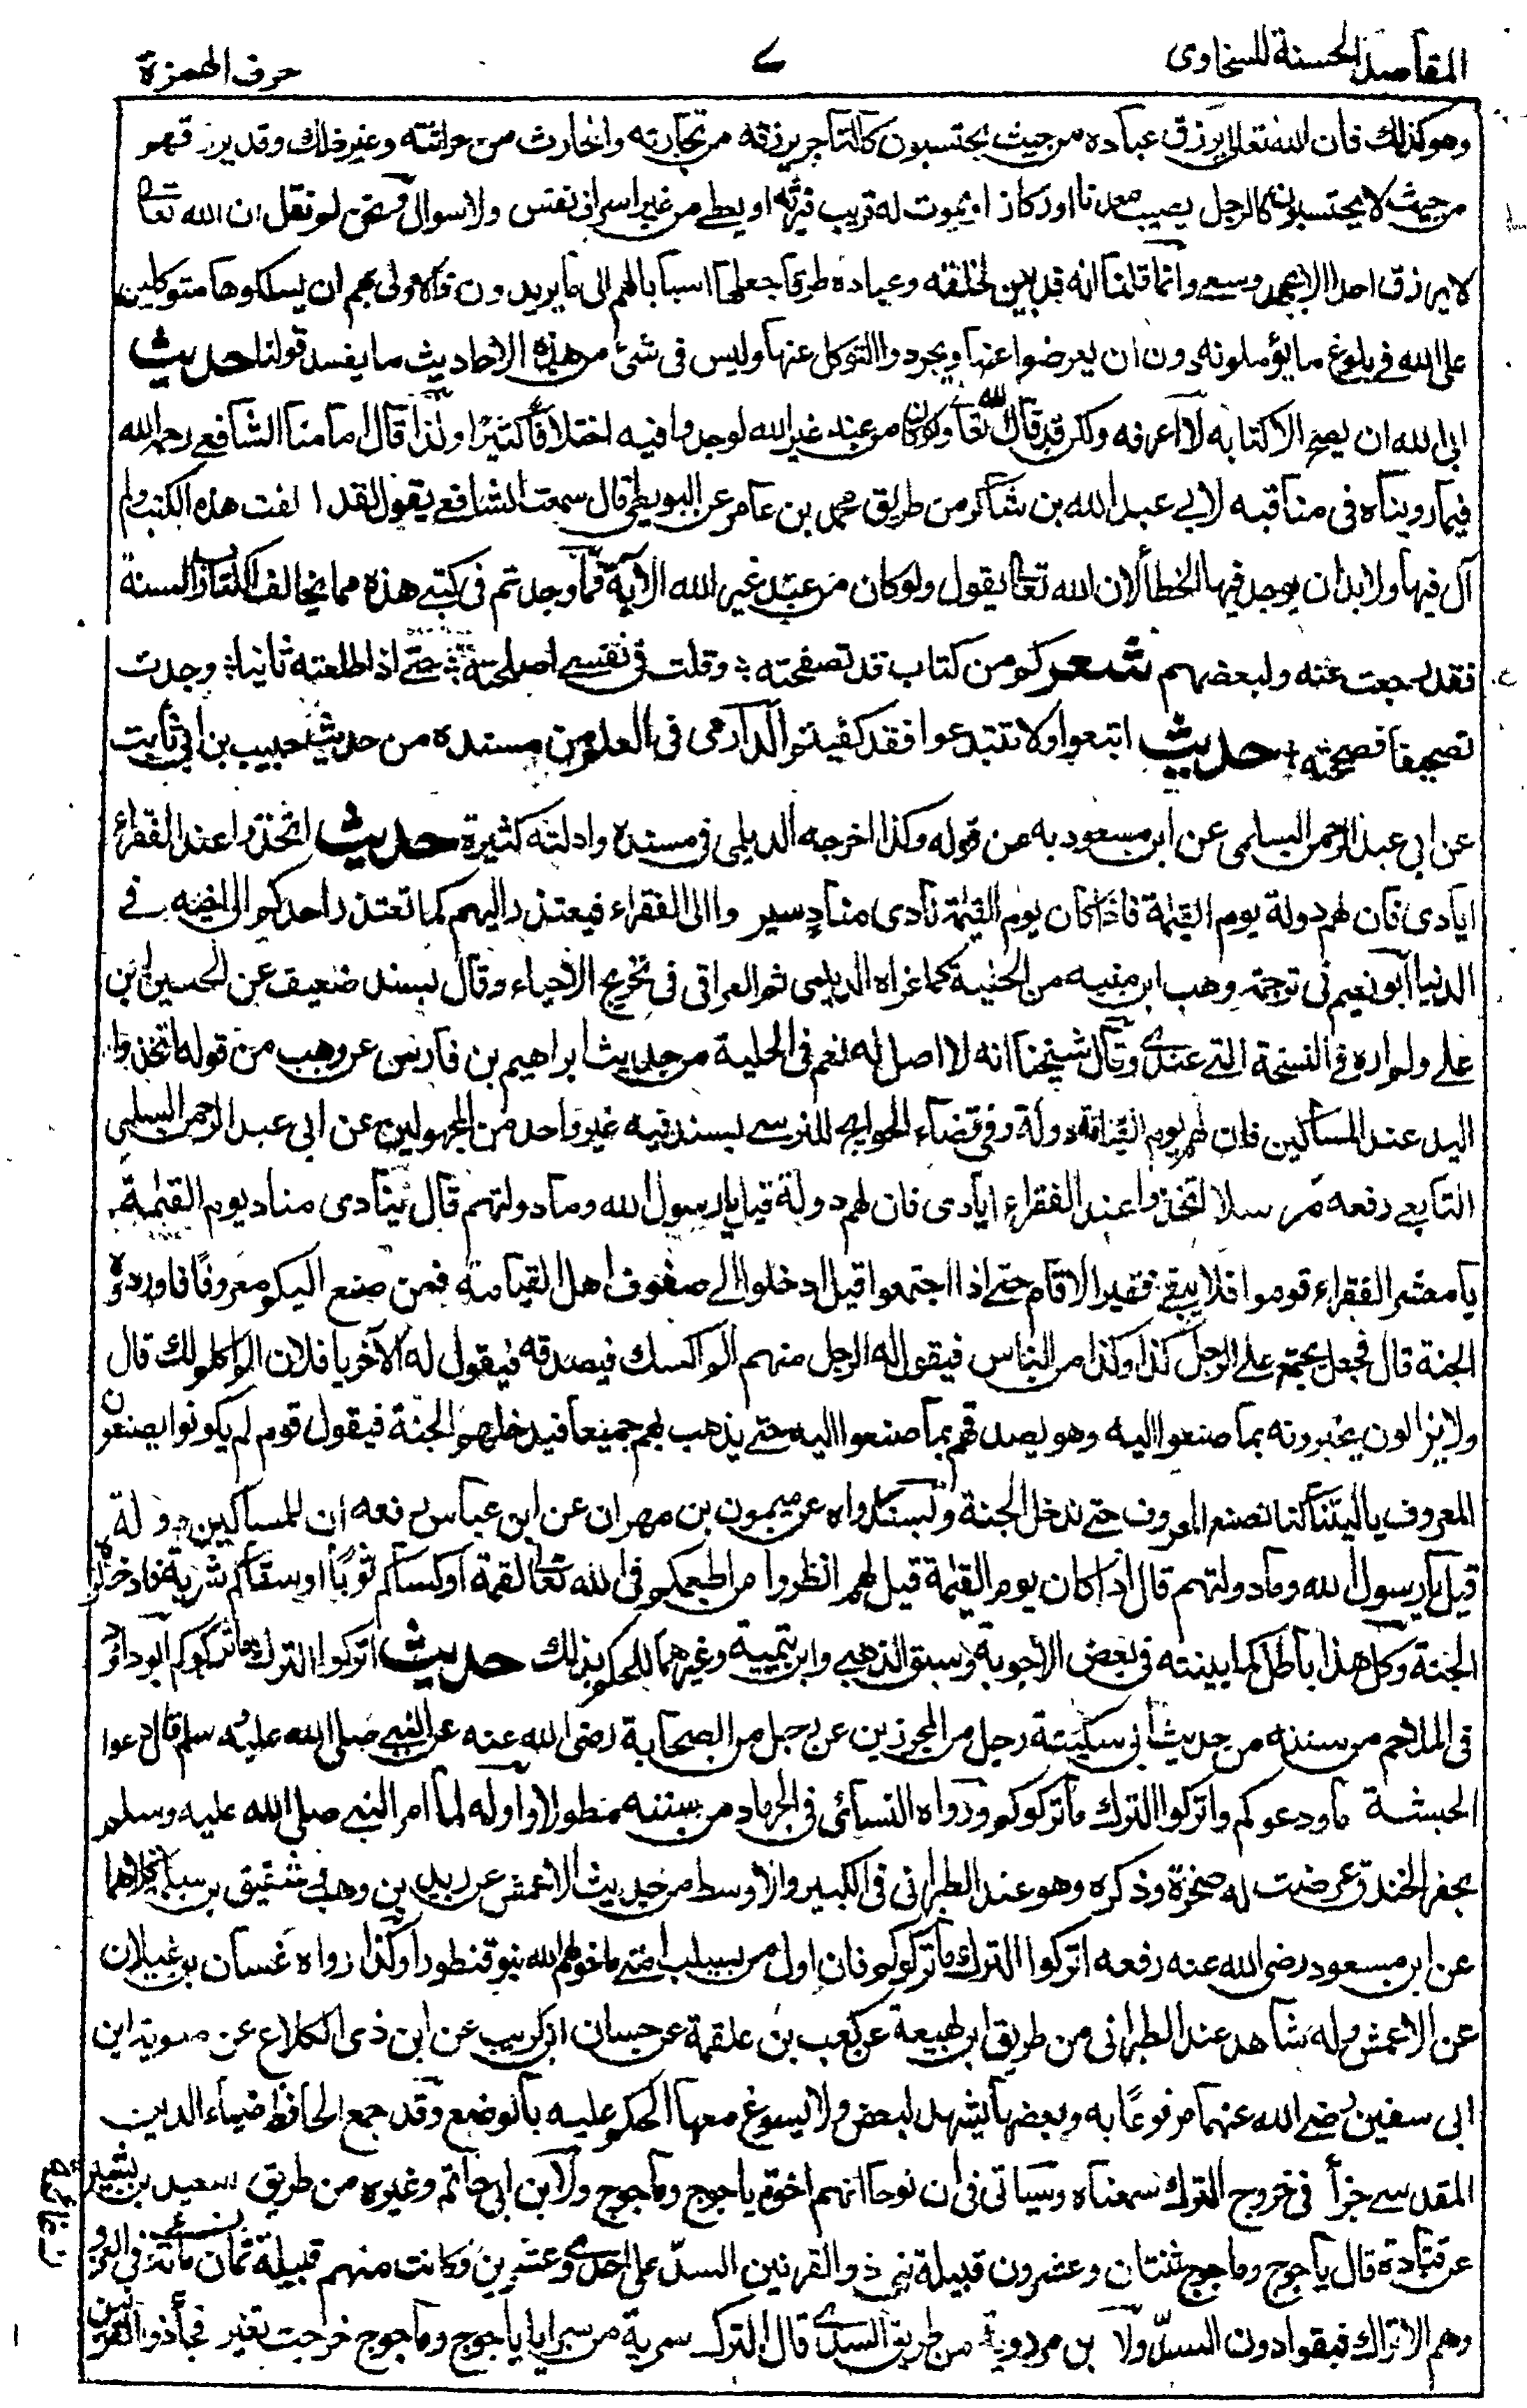 المقاصد الحسنة للسخاوى
٧
حرف الهمزة
وهو كذلك فان الله تعالى يرزق عباده من حيث يحتسبون كالتاجر يرزقه من تجارته والحارث من حراثته وغير ذلك وقد يرزقهم
من حيث لا يحتسبون كالرجل يصيب معدنا او ركازا او يموت له قريب فيرثه او يعطى من غير اسراف نفس ولا سوال ونحن لم نقل ان الله تعالى
لا يرزق احدا الا بجهد وسعى وانما قلنا انه قد بين لخلقه وعباده طرقا جعلها اسبابا لهم الى ما يريدون فالاولى بهم ان يسلكوها متوكلين
على الله فى بلوغ ما يؤملونه دون ان يعرضوا عنها ويجردوا التوكل عنها وليس فى شئ من هذه الاحاديث ما يفسد قولنا حديث
ابى الله ان يصح الا كتابه لا اعرفه ولكن قد قال الله تعالى ولو كان من عند غير الله لوجدوا فيه اختلافا كثيرا ولذا قال امامنا الشافعى رحمه الله
فيما رويناه فى مناقبه لابى عبد الله بن شاكر من طريق محمد بن عامر عن البويطى قال سمعت الشافعى يقول لقد الفت هذه الكتب ولم
آل فيها ولا بد ان يوجد فيها الخطأ لان الله تعالى يقول ولو كان من عند غير الله الآية فما وجدتم فى كتبى هذه مما يخالف الكتاب والسنة
فقد رجعت عنه ولبعضهم شعر كم من كتاب قد تصفحته وقلت فى نفسى اصلحته حتى اذا طالعته ثانيا وجدت
تصحيفا فصححته حديث اتبعوا ولا تبتدعوا فقد كفيتم الدارمى فى العلم من مسنده من حديث حبيب بن ابى ثابت
عن ابى عبد الرحمن السلمى عن ابن مسعود به من قوله وكذا اخرجه الديلمى فى مسنده وادلته كثيرة حديث اتخذوا عند الفقراء
ايادى فان لهم دولة يوم القيمة فاذا كان يوم القيمة نادى مناد سيروا الى الفقراء فيعتذر اليهم كما تعتذر احدكم الى اخيه فى
الدنيا ابو نعيم فى ترجمة وهب ابن منبه من الحلية كما عزاه الديلمى ثم العراقى فى تخريج الاحياء وقال بسند ضعيف عن الحسين ابن
على ولم اره فى النسخة التى عندى وقال شيخنا انه لا اصل له نعم فى الحلية من حديث ابراهيم بن فارس عن وهب من قوله اتخذوا
اليد عند المساكين فان لهم يوم القيامة دولة وفى قضاء الحوائج للنرسى بسند فيه غير واحد من المجهولين عن ابى عبد الرحمن السلمى
التابعى رفعه مرسلا اتخذوا عند الفقراء ايادى فان لهم دولة قيل يا رسول الله وما دولتهم قال ينادى مناد يوم القيمة
يا معشر الفقراء قوموا فلا يبقى فقير الا قام حتى اذا اجتمعوا قيل ادخلوا الى صفوف اهل القيامة فمن صنع اليكم معروفا فاوردوه
الجنة قال فجعل يجتمع على الرجل كذا وكذا من الناس فيقول له الرجل منهم الم اكسك فيصدقه فيقول له الآخر يا فلان الم اكلم لك قال
ولا يزالون يخبرونه بما صنعوا اليه وهو يصدقهم بما صنعوا اليه حتى يذهب بهم جميعا فيدخلهم الجنة فيقول قوم لم يكونوا يصنعون
المعروف يا ليتنا كنا نصنع المعروف حتى ندخل الجنة وبسند رواه عن ميمون بن مهران عن ابن عباس رفعه ان للمساكين دولة
قيل يا رسول الله وما دولتهم قال اذا كان يوم القيمة قيل لهم انظروا من اطعمكم فى الله تعالى لقمة او كساكم ثوبا او سقاكم شربة فادخلوه
الجنة وكل هذا باطل كما بينته فى بعض الاجوبة وسبق الذهبى وابن تيمية وغيرهما للحكم بذلك حديث اتركوا الترك ما تركوكم ابو داؤد
فى الملاحم من سننه من حديث ابى سكينة رجل من المحررين عن رجل من الصحابة رضى الله عنه عن النبى صلى الله عليه وسلم قال دعوا
الحبشة ما ودعوكم واتركوا الترك ما تركوكم ورواه النسائى فى الجهاد من سننه مطولا واوله لما امر النبى صلى الله عليه وسلم
بحفر الخندق عرضت له صخرة وذكره وهو عند الطبرانى فى الكبير والاوسط من حديث الاعمش عن زيد بن وهب شقيق بن سلمة كلاهما
عن ابن مسعود رضى الله عنه رفعه اتركوا الترك ما تركوكم فان اول من يسلب امتى ما خولهم الله بنو قنطورا وكذا رواه غسان بن غيلان
عن الاعمش وله شاهد عند الطبرانى من طريق ابن لهيعة عن كعب بن علقمة عن حسان بن كريب عن ابن ذى الكلاع عن معوية ابن
ابى سفين رضى الله عنهما مرفوعا به وبعضها يشهد لبعض ولا يسوغ معها الحكم عليه بالوضع وقد جمع الحافظ ضياء الدين
المقدسى جزأ فى خروج الترك سمعناه وسياتى فى ان نوحا انهم اخوة ياجوج وماجوج ولابن ابى حاتم وغيره من طريق سعيد بن بشير
عن قتادة قال ياجوج وماجوج ثنتان وعشرون قبيلة بنى ذو القرنين السد على احدى وعشرين وكانت منهم قبيلة فى الغزو
وهم الاتراك فبقوا دون السد ولابن مردويه من طريق السدى قال الترك سرية من سرايا ياجوج وماجوج خرجت تغير فجأ ذو القرنين